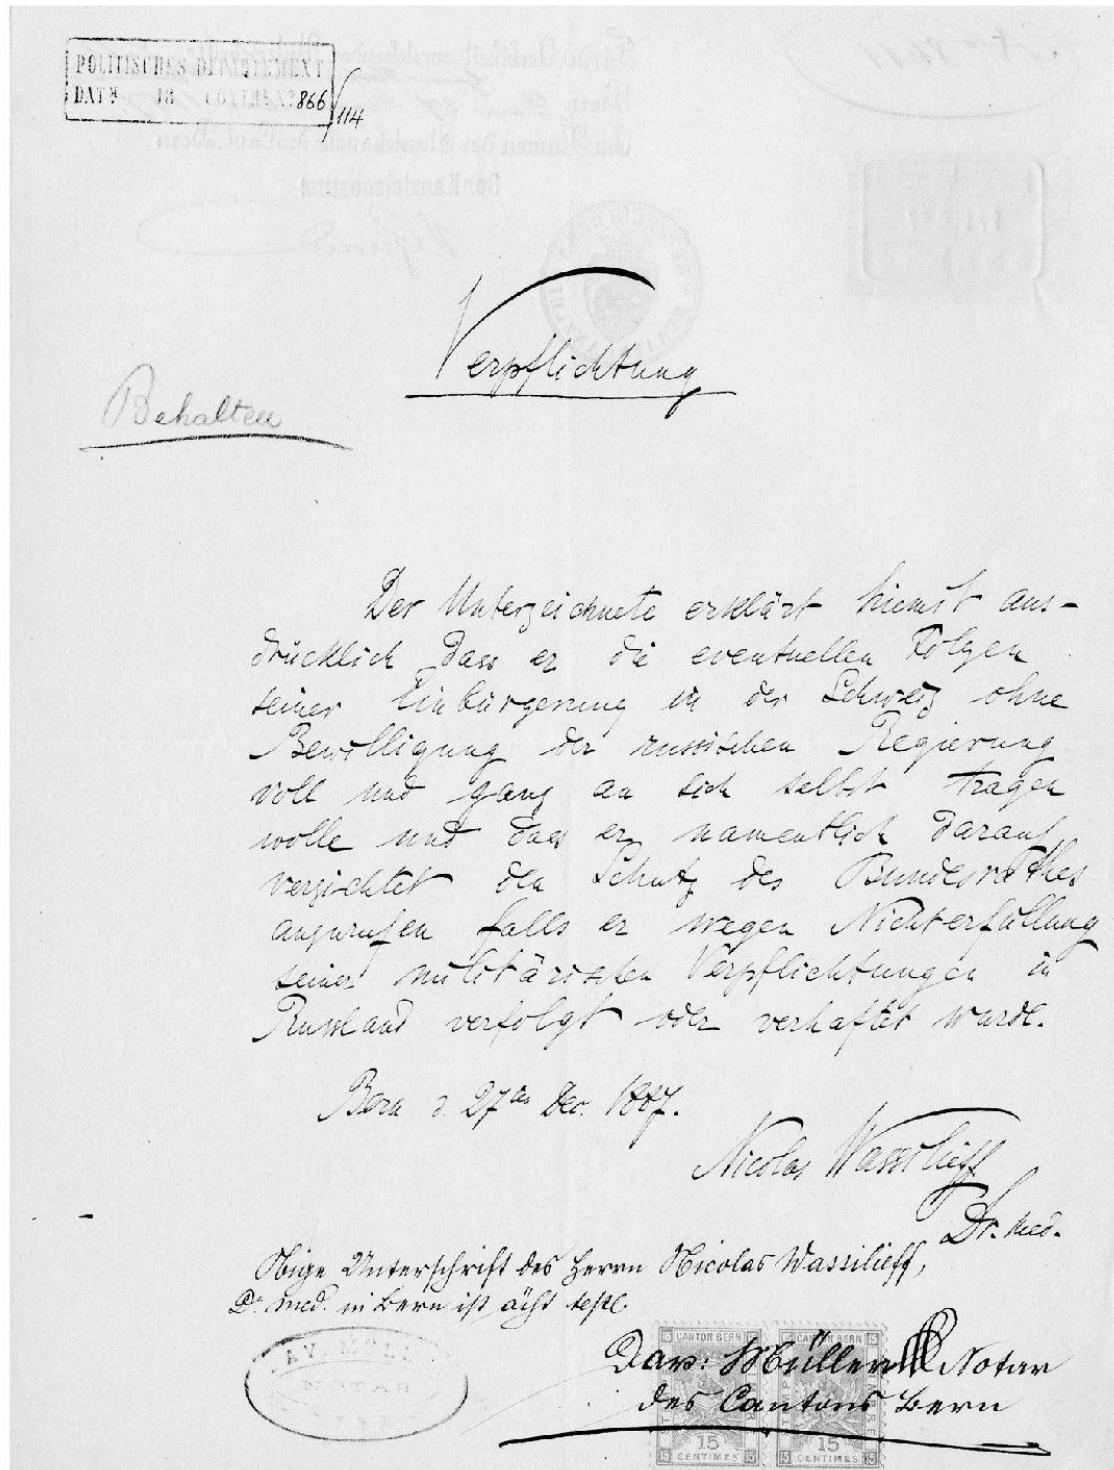 POLITISCHES DEPARTEMENT
866
/114
Verpflichtung
Behalten
Der Unterzeichnete erklärt hiemit aus-
drücklich dass er die eventuellen Folgen
seiner Einbürgerung in der Schweiz ohne
Bewilligung der russischen Regierung
voll und ganz an sich selbst tragen
wolle und dass er namentlich darauf
verzichtet den Schutz des Bundesrathes
anzurufen falls er wegen Nichterfüllung
seiner militärischen Verpflichtungen in
Russland verfolgt oder verhaftet wurde.
Bern d. 27ten Dec. 1887.
Nicolas Wassilieff
Dr. med.
Obige Unterschrift des Herrn Nicolas Wassilieff,
Dr. med. in Bern ist ächt
Dav: Müller Notar
des Cantons Bern
CANTON BERN
CANTON BERN
15
CENTIMES
15
CENTIMES
NOTAR